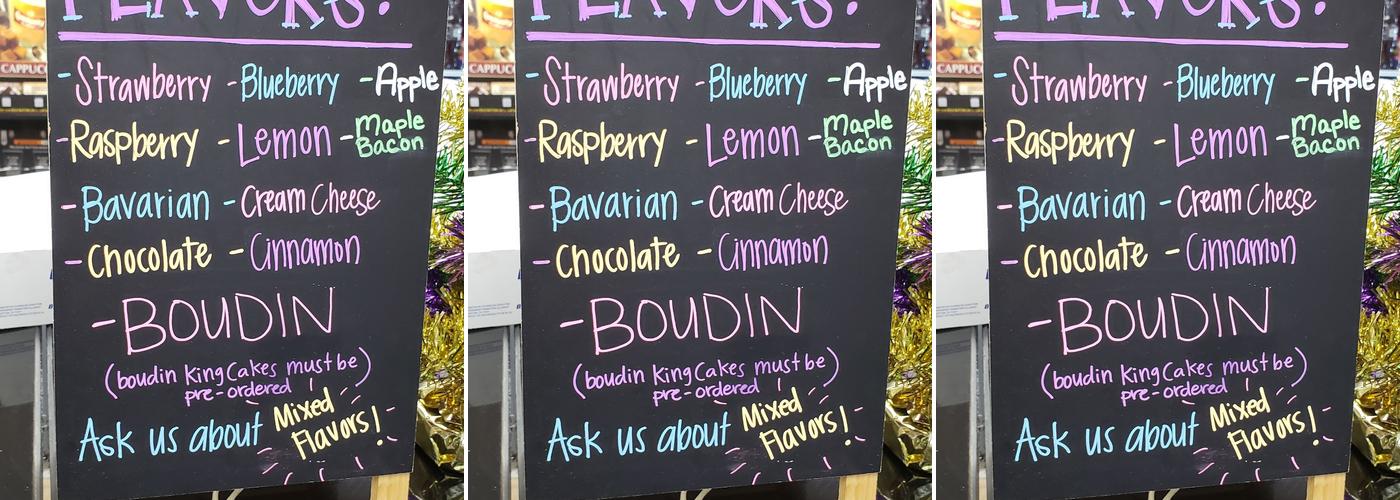 FLAVORS!
-Strawberry -Blueberry -Apple
-Raspberry -Lemon -Maple Bacon
-Bavarian -Cream Cheese
-Chocolate -Cinnamon
-BOUDIN
(boudin King Cakes must be)
pre-ordered
Ask us about Mixed Flavors!
CAPPUCC
FLAVORS!
-Strawberry -Blueberry -Apple
-Raspberry -Lemon -Maple Bacon
-Bavarian -Cream Cheese
-Chocolate -Cinnamon
-BOUDIN
(boudin King Cakes must be)
pre-ordered
Ask us about Mixed Flavors!
CAPPUCC
FLAVORS!
-Strawberry -Blueberry -Apple
-Raspberry -Lemon -Maple Bacon
-Bavarian -Cream Cheese
-Chocolate -Cinnamon
-BOUDIN
(boudin King Cakes must be)
pre-ordered
Ask us about Mixed Flavors!
CAPPUCC